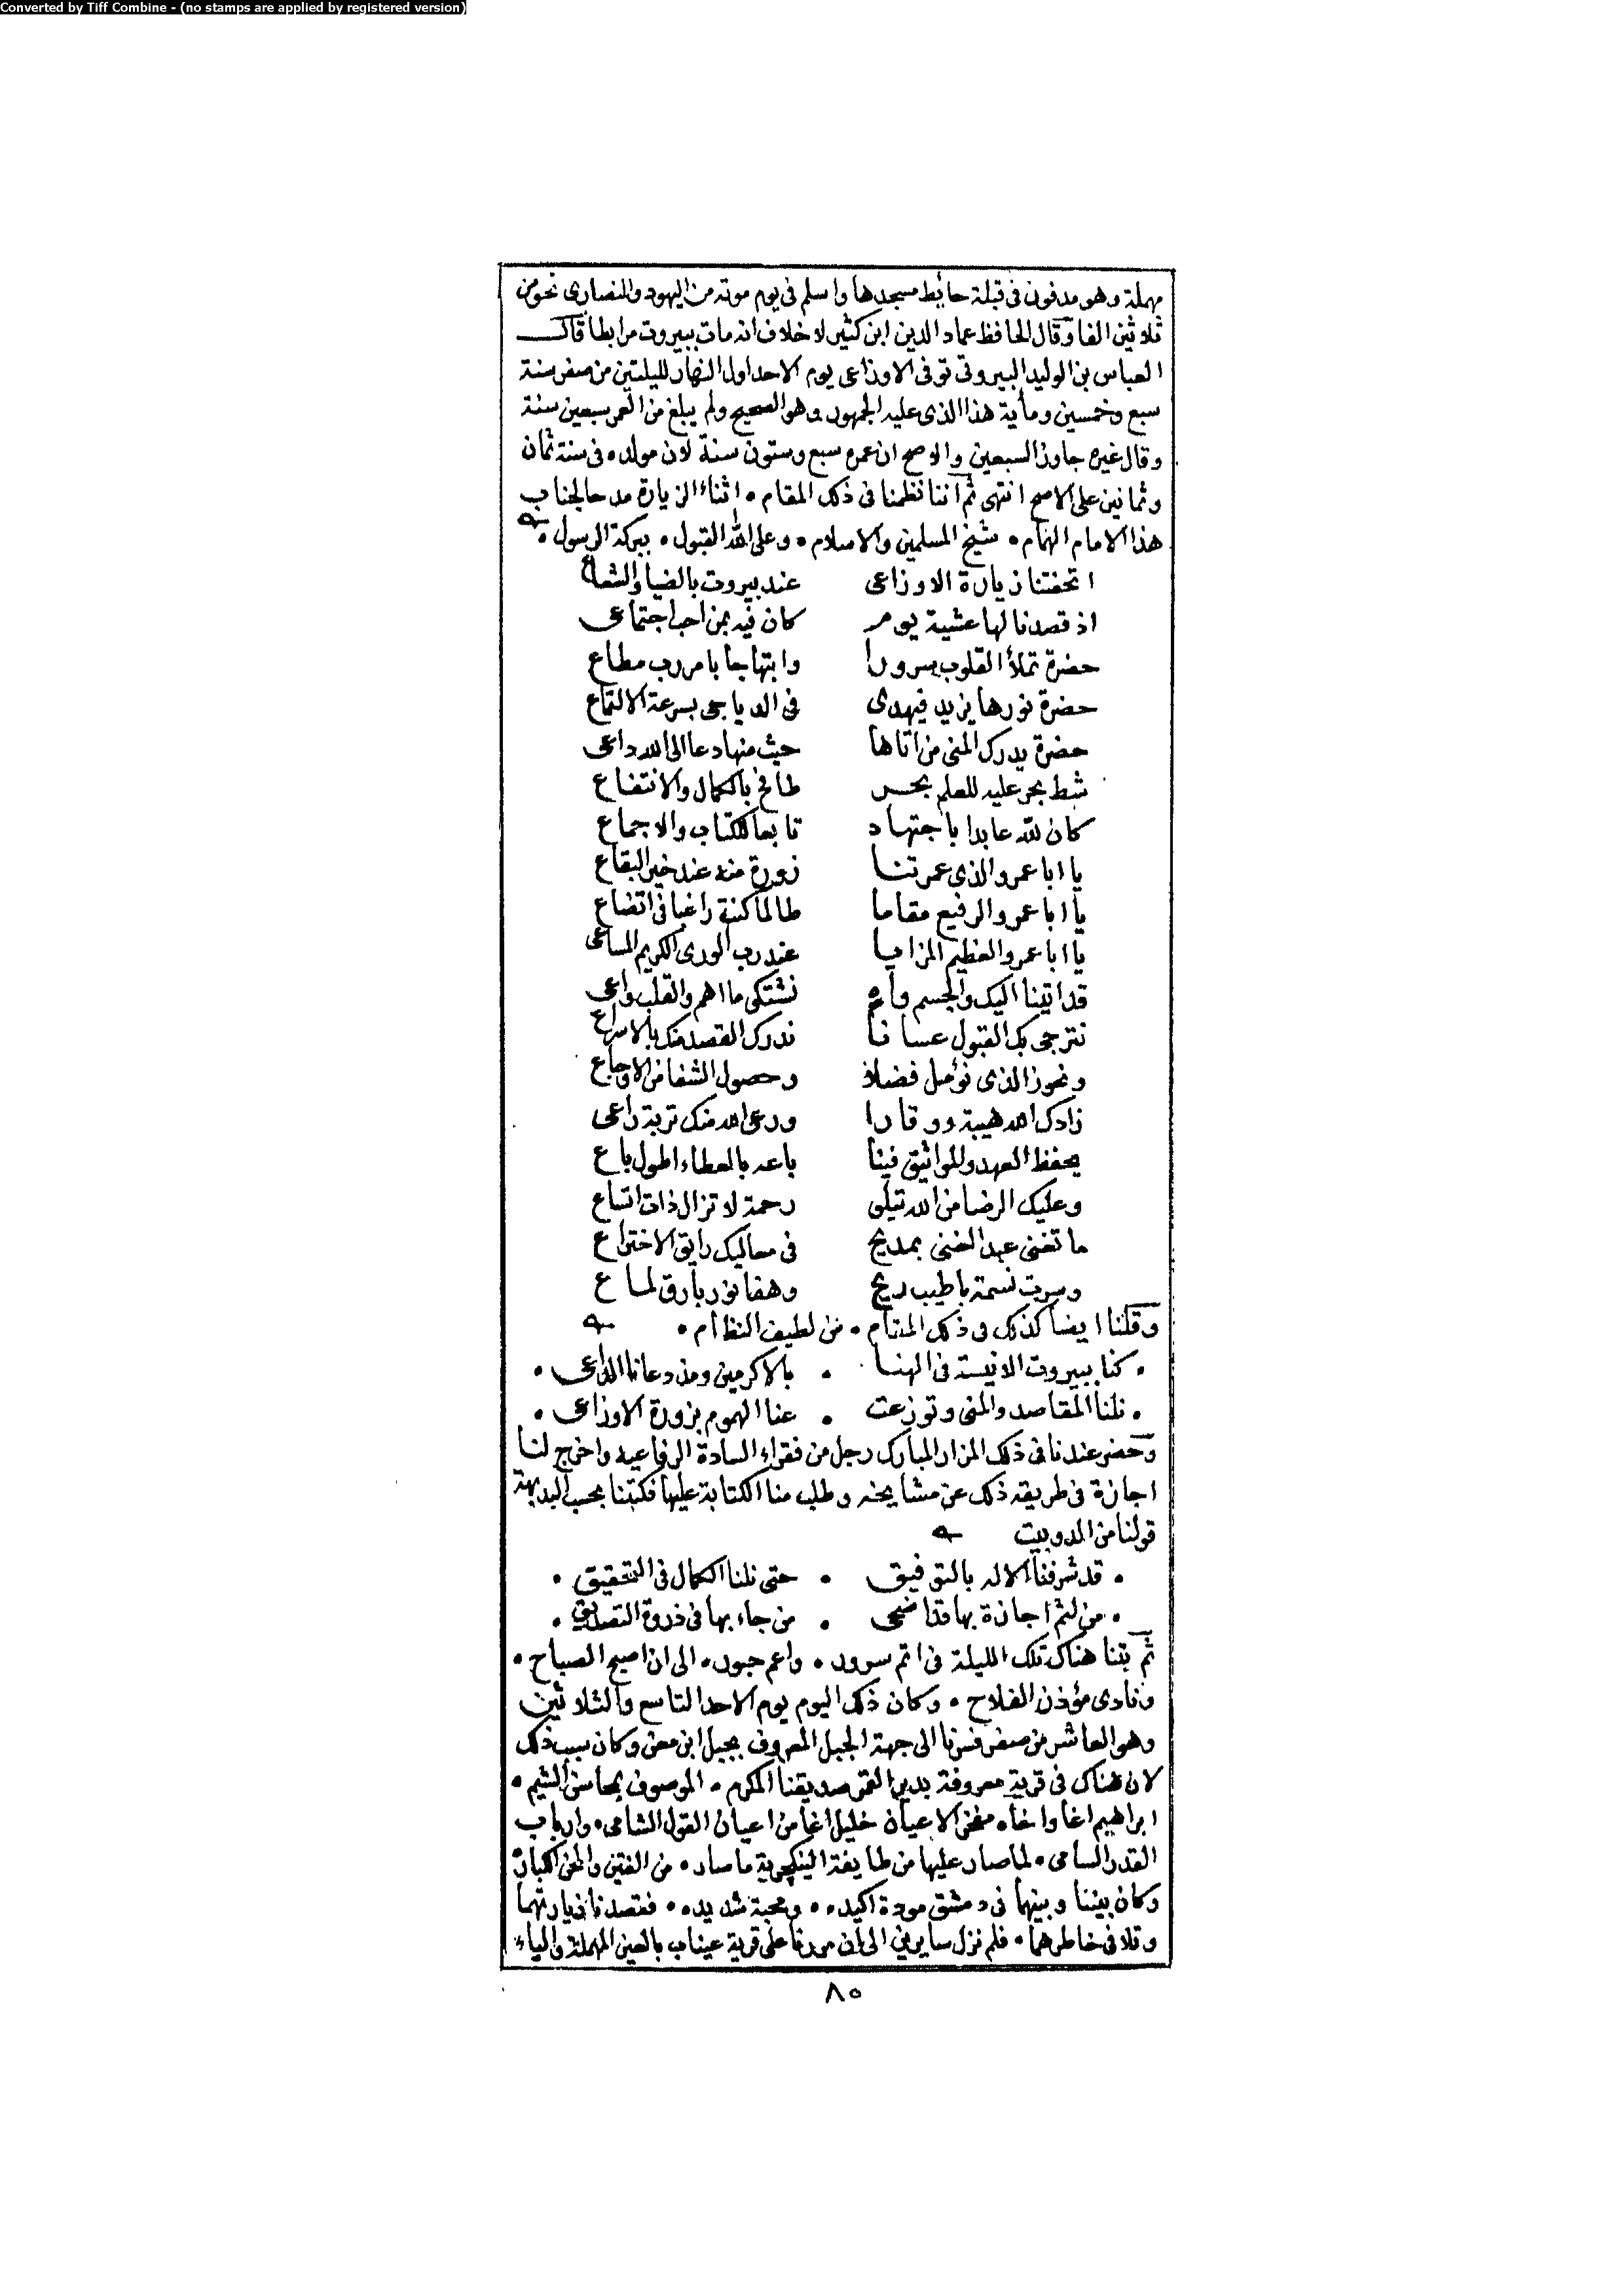 Converted by Tiff Combine - (no stamps are applied by registered version)
مهملة وهو مدفون فى قبلة حايط مسجدها واسلم فى يوم موته من اليهود والنصارى نحو من
ثلاثين الفا وقال الحافظ عماد الدين ابن كثير لا خلاف انه مات ببيروت مرابطا قال
العباس بن الوليد البيروتى توفى الاوزاعى يوم الاحد اول النهار لليلتين من صفر سنة
سبع وخمسين ومأية هذا الذى عليه الجمهور وهو الصحيح ولم يبلغ من العمر سبعين سنة
وقال غيره جاوز السبعين والاصح ان عمره سبع وستون سنة لان مولده فى سنة ثمان
وثمانين على الاصح انتهى ثم اننا نظمنا فى ذلك المقام • اثناء الزيارة مدحا لجناب
هذا الامام الهمام • شيخ المسلمين والاسلام • وعلى الله القبول • ببركة الرسول •
اتحفتنا زيارة الاوزاعى عند بيروت بالضيا والشعاع
اذ قصدنا لها عشية يوم كان فيه بمن احب اجتماعى
حضرة تملأ القلوب سرورا وابتهاجا بامر رب مطاع
حضرة نورها يزيد فيهدى فى الدياجى بسرعة الالتماع
حضرة يدرك المنى من اتاها حيث منها دعا الى الله داعى
شط بحر عليه للعلم بحر طافح بالكمال والانتفاع
كان لله عابدا باجتهاد تابعا للكتاب والاجماع
يا ابا عمرو الذى عمرتنا زورة منه عند خير البقاع
يا ابا عمرو الرفيع مقاما طالما كنت راغبا فى اتضاع
يا ابا عمرو العظيم المزايا عند رب الورى الكريم المساعى
قد اتينا اليك والجسم واه نشتكى ما اهم والقلب واعى
نترجى بك القبول عسانا ندرك القصد منك بالاسراع
ونحوز الذى نؤمل فضلا وحصول الشفا من الاوجاع
زادك الله هيبة ووقارا ورعى الله منك تربة راعى
يحفظ العهد والمواثيق فينا باعه بالعطاء اطول باع
وعليك الرضا من الله تيلى رحمة لا تزال ذات اتساع
ما تغنى عبد الغنى بمديح فى معاليك رايق الاختراع
وسرت نسمة باطيب ريح وهفا نور بارق لماع
وقلنا ايضا كذلك فى ذلك المقام • من لطيف النظام •
• كنا ببيروت الانيسة فى الهنا • بالاكرمين ومذ دعانا الداعى •
• نلنا المقاصد والمنى وتوزعت • عنا الهموم بزورة الاوزاعى •
وحضر عندنا فى ذلك المزار المبارك رجل من فقراء السادة الرفاعيه واخرج لنا
اجازة فى طريقه ذلك عن مشايخه وطلب منا الكتابة عليها فكتبنا بحسب البديهة
قولنا من الدوبيت
• قد شرفنا الاله بالتوفيق • حتى نلنا الكمال فى التحقيق •
• من لثم اجازة بها قد اضحى • من جاء بها فى ذروة التصديق •
ثم بتنا هناك تلك الليلة فى اتم سرور • واعم حبور • الى ان اصبح الصباح •
ونادى مؤذن الفلاح • وكان ذلك اليوم يوم الاحد التاسع والثلاثين
وهو العاشر من صفر فسرنا الى جهة الجبل المعروف بجبل ابن معن وكان سبب ذلك
لان هناك فى قرية معروفة بدير القمر صديقنا المكرم • الموصوف بمحاسن الشيم •
ابراهيم اغا واخاه مفخر الاعيان خليل اغا من اعيان القول الشامى • وارباب
القدر السامى • لما صار عليها من طايفة الينكچرية ما صار • من الفتن والمحن الكبار
وكان بيننا وبينهما فى دمشق مودة اكيده • ومحبة شديده • فقصدنا زيارتهما
وتلافى خاطرهما • فلم نزل سايرين الى ان مررنا على قرية عيناب بالعين المهملة والياء
٨٥